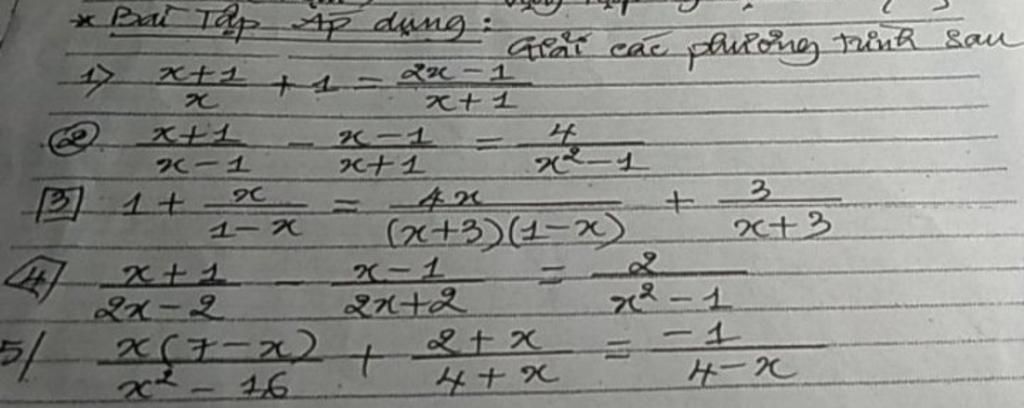 * Bài Tập Áp dụng:
Giải các phương trình sau
1) \frac{x+1}{x} + 1 = \frac{2x-1}{x+1}
2) \frac{x+1}{x-1} - \frac{x-1}{x+1} = \frac{4}{x^2-1}
3) 1 + \frac{x}{1-x} = \frac{4x}{(x+3)(1-x)} + \frac{3}{x+3}
4) \frac{x+1}{2x-2} - \frac{x-1}{2x+2} = \frac{2}{x^2-1}
5/ \frac{x(7-x)}{x^2-16} + \frac{2+x}{4+x} = \frac{-1}{4-x}